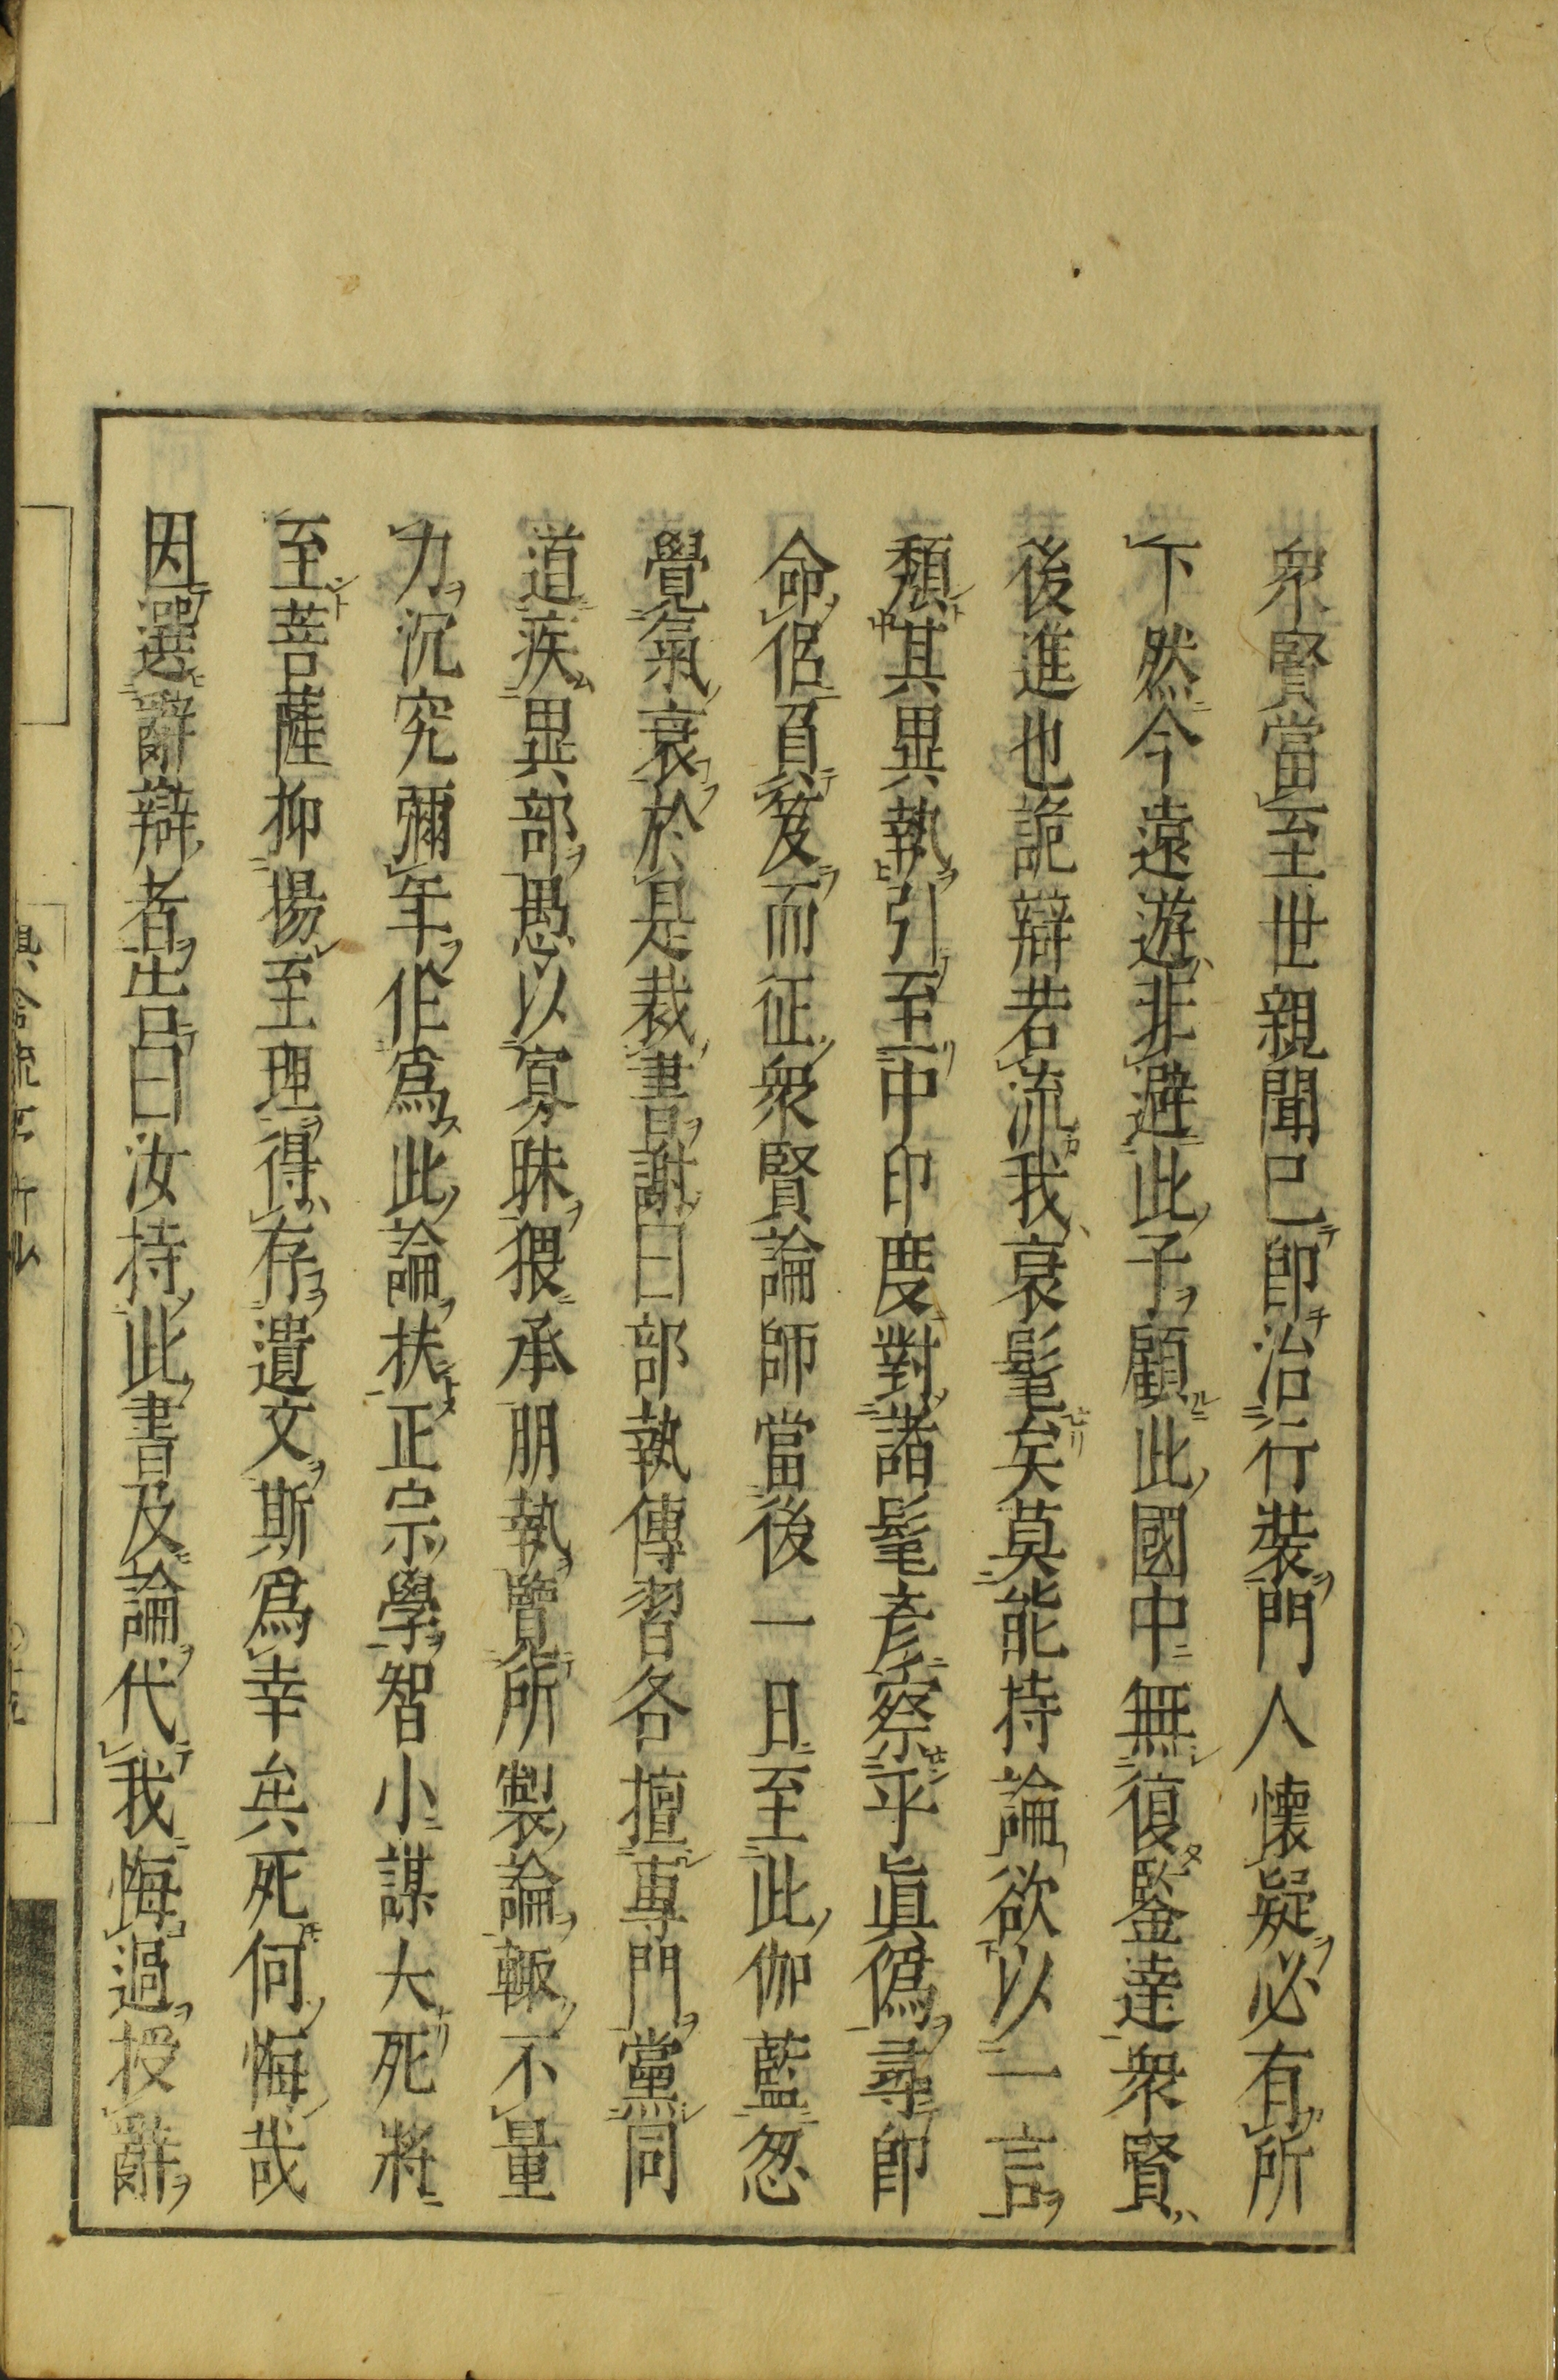 衆賢當至世親聞已即治行裝門人懷疑必有所
下然今遠遊非避此子顧此國中無復鑒達衆賢
後進也詭辯若流我衰髦矣莫能持論欲以一言
頽其異執引至中印度對諸髦彥察乎眞僞尋即
命侶負笈而征衆賢論師當後一日至此伽藍忽
覺氣衰於是裁書謝曰部執傳習各擅專門黨同
道疾異部愚以寡昧猥承朋執覽所製論輙不量
力沉究彌年作爲此論扶正宗學智小謀大死將
至菩薩抑揚至理得存遺文斯爲幸矣死何悔哉
因選辭辯者告曰汝持此書及論代我悔過授辭